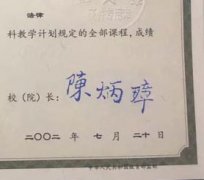 法律
科教学计划规定的全部课程,成绩
校(院)长: 陳炳璋
二〇〇二 年 七 月 二十 日